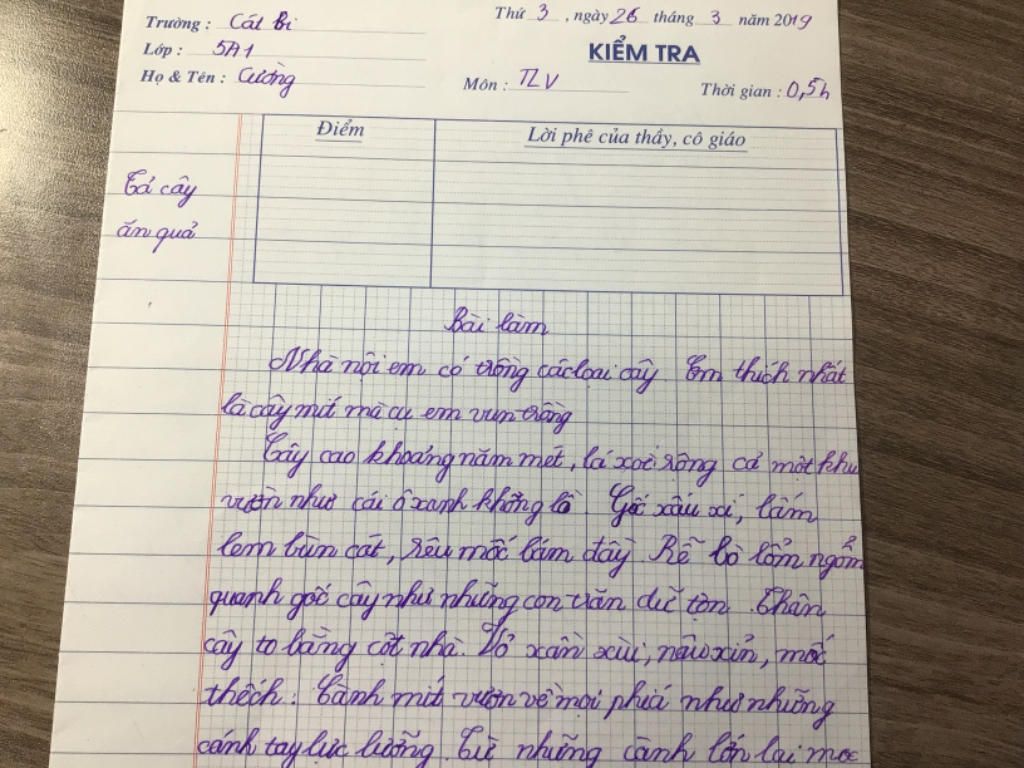 Trường : Cát Bi
Thứ 3 , ngày 26 tháng 3 năm 2019
Lớp : 5A1
KIỂM TRA
Họ & Tên : Cường
Môn : TLV
Thời gian : 0,5h
Điểm
Lời phê của thầy, cô giáo
Tả cây
ăn quả
Bài làm
Nhà nội em có trồng các loại cây. Em thích nhất
là cây mít mà cụ em vun trồng
Cây cao khoảng năm mét, lá xoè rộng cả một khu
vườn như cái ô xanh khổng lồ. Gốc xấu xí, lấm
lem bùn cát, rêu mốc bám đầy. Rễ bò lổm ngổm
quanh gốc cây như những con trăn dữ tợn. Thân
cây to bằng cột nhà. Vỏ xần xùi, nâu xỉn, mốc
thếch. Cành mít vươn về mọi phía như những
cánh tay lực lưỡng. Từ những cành lớn lại mọc